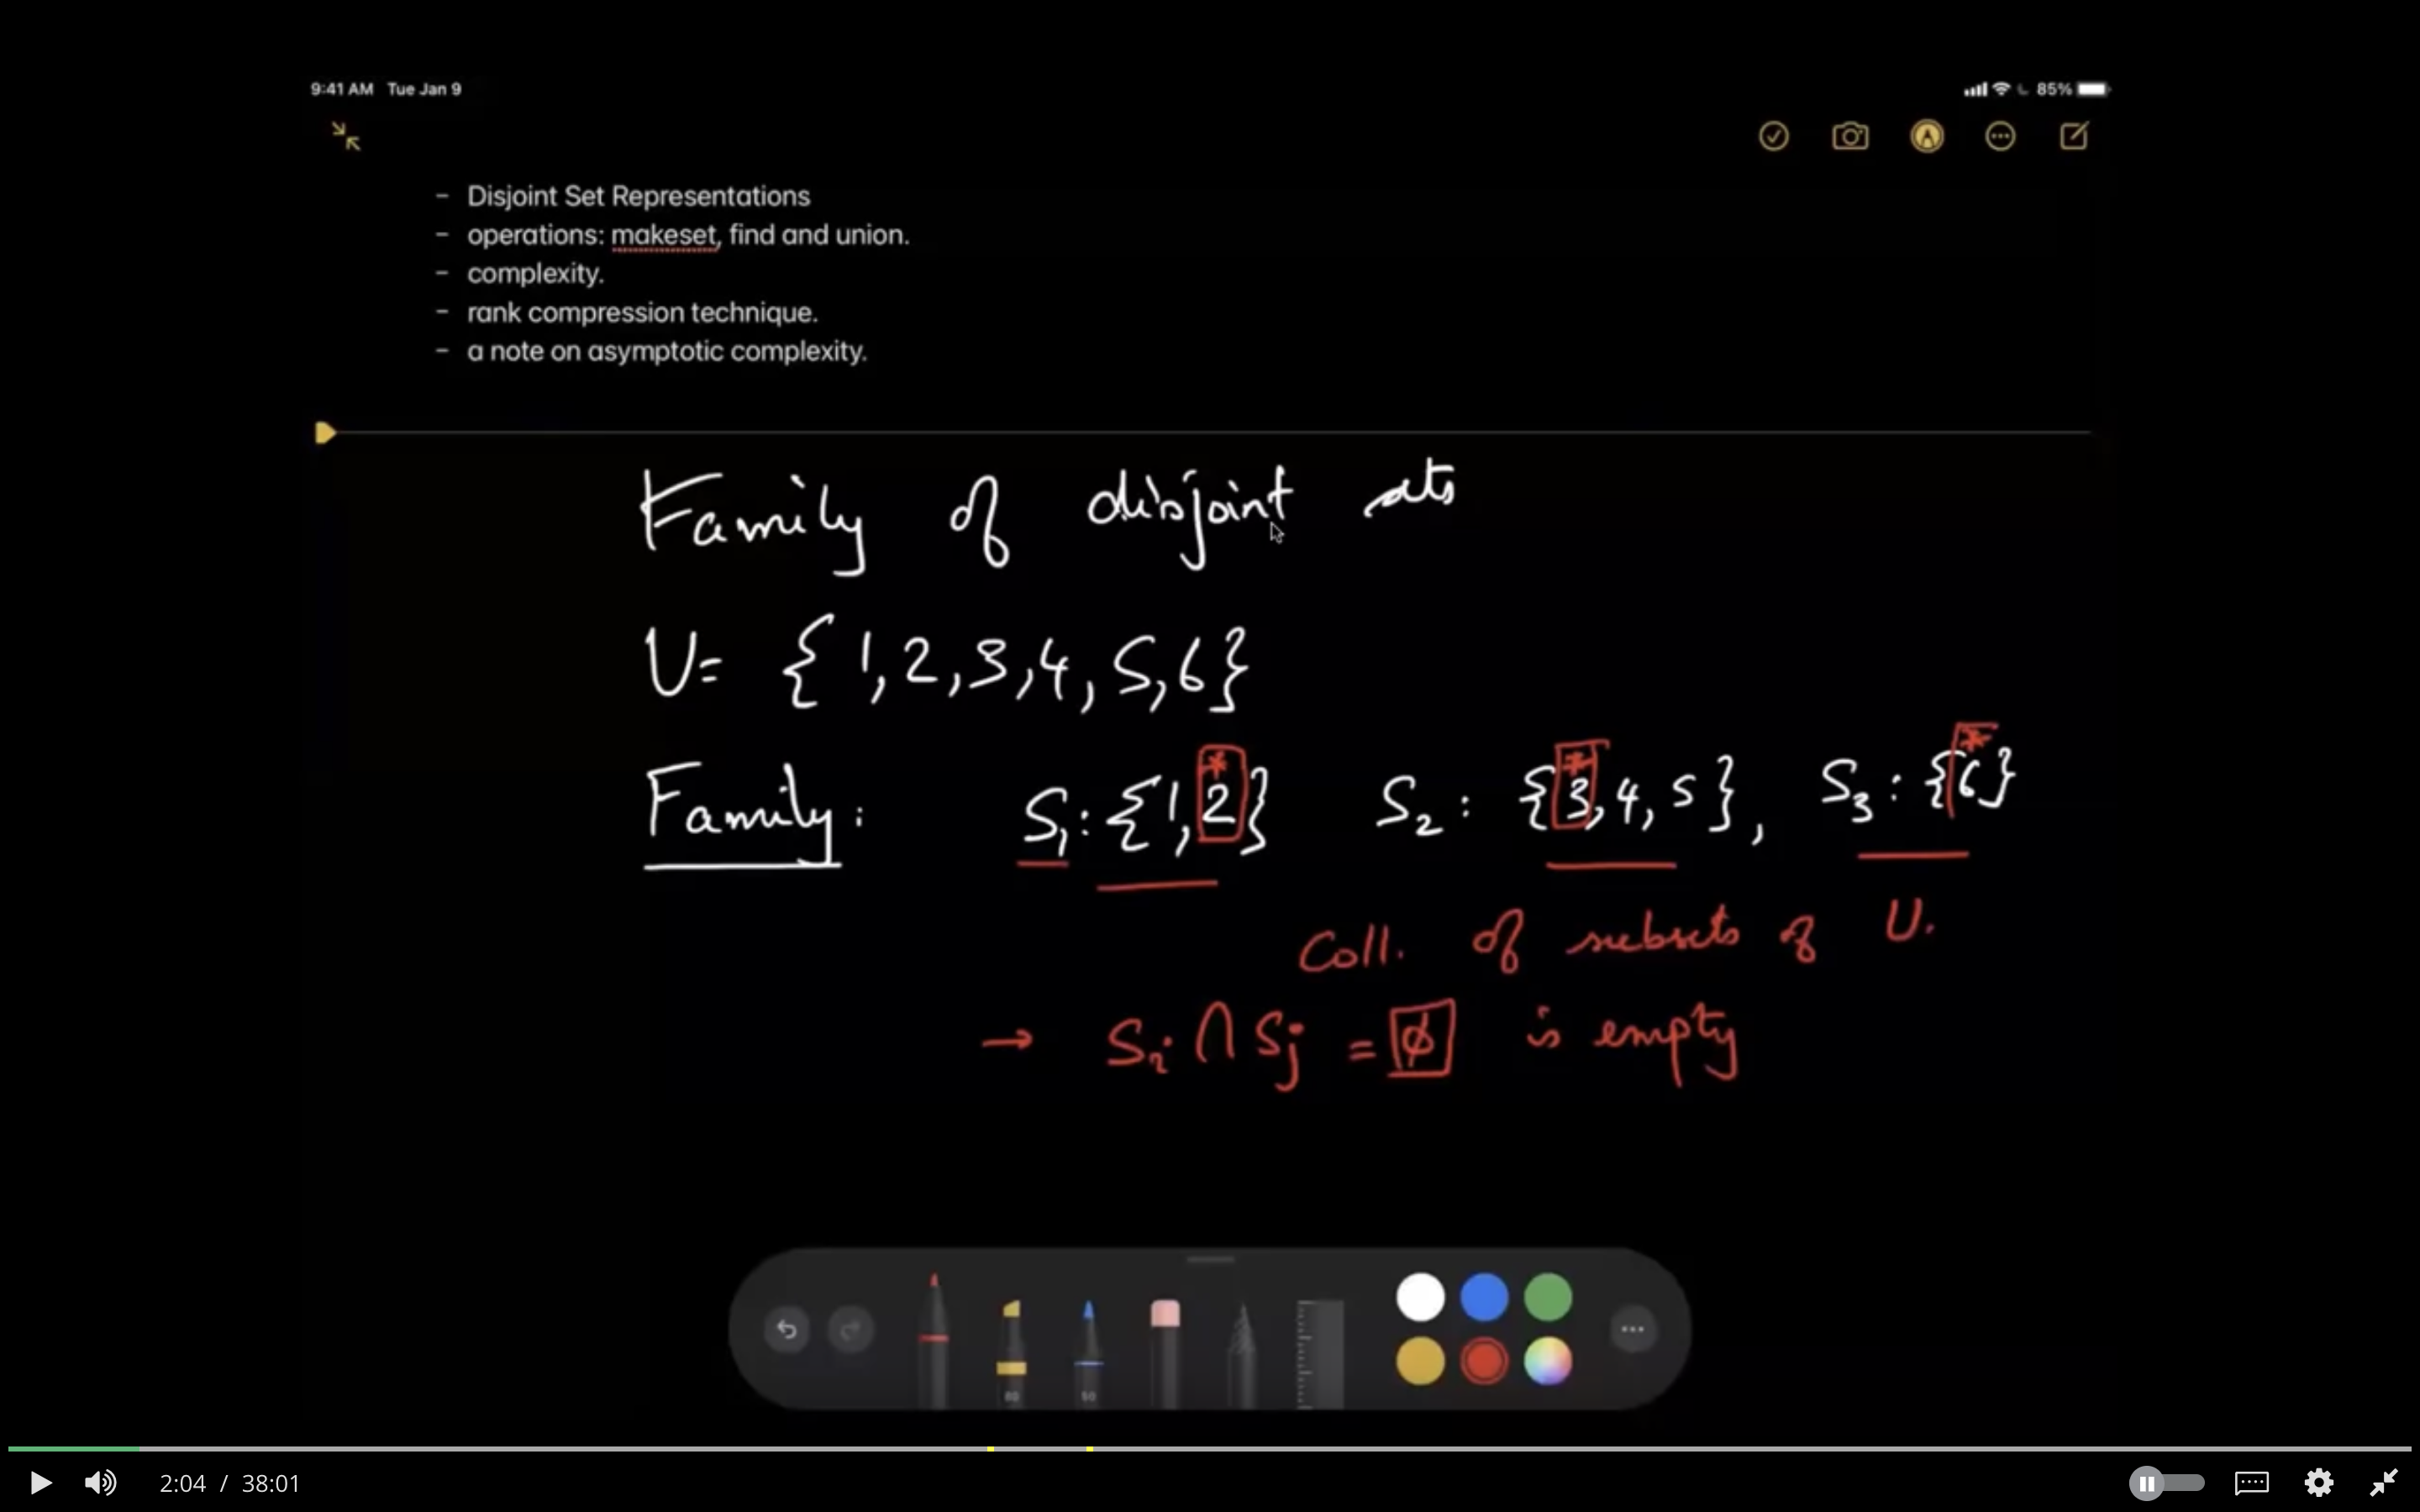 9:41 AM Tue Jan 9 85%
- Disjoint Set Representations
- operations: makeset, find and union.
- complexity.
- rank compression technique.
- a note on asymptotic complexity.
Family of disjoint sets
U= {1,2,3,4,5,6}
Family: S₁:{1,2*} S₂: {3*,4,5}, S₃:{6*}
Coll. of subsets of U.
→ Sᵢ ∩ Sⱼ = ϕ is empty
80 50
2:04 / 38:01